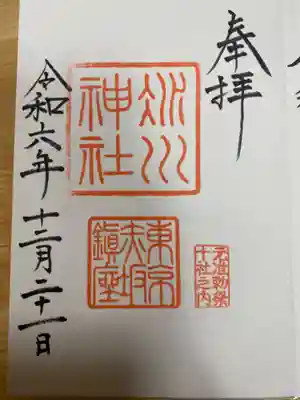 奉拝
氷川
神社
東京
赤坂
鎮座
元准勅祭
十社之内
令和六年十二月二十一日